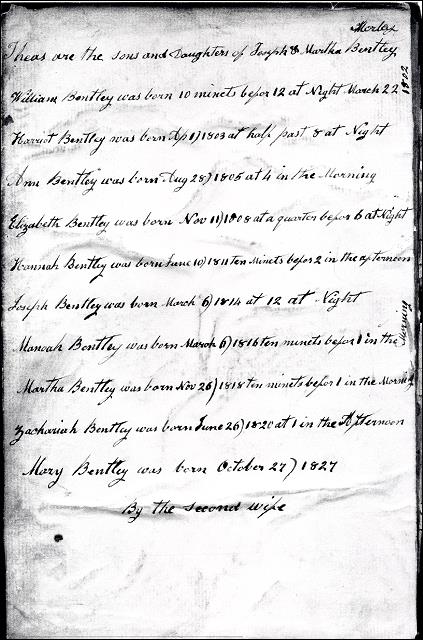 Morley
Theas are the sons and Daughters of Joseph & Martha Bentley
William Bentley was born 10 minets befor 12 at Night March 22 1802
Harriot Bentley was born Ap 1) 1803 at half past 8 at Night
Ann Bentley was born Aug 28) 1805 at 4 in the Morning
Elizabeth Bentley was born Nov 11) 1808 at a quarter befor 6 at Night
Hannah Bentley was born June 10) 1811 ten Minets befor 2 in the afternoon
Joseph Bentley was born March 6) 1814 at 12 at Night
Manoah Bentley was born March 6) 1816 ten minets befor 1 in the Morning
Martha Bentley was born Nov 26) 1818 ten minets befor 1 in the Morning
Zachariah Bentley was born June 26) 1820 at 1 in the Afternoon
Mary Bentley was born October 27) 1827
By the second wife